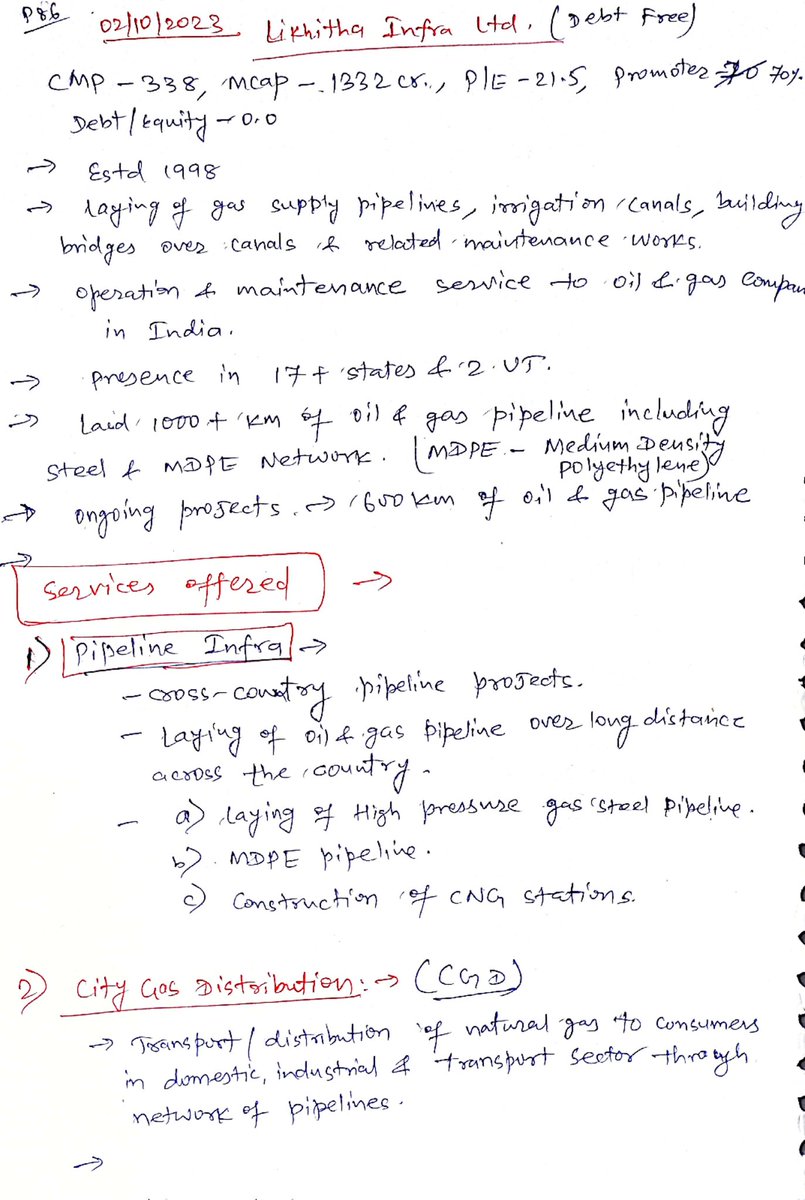 P86
02/10/2023. Likhitha Infra Ltd. (Debt Free)
CMP - 338, Mcap - 1332 cr., P/E - 21.5, Promoter - 70%
Debt/Equity - 0.0
→ Estd 1998
→ Laying of gas supply pipelines, irrigation canals, building
bridges over canals & related maintenance works.
→ Operation & maintenance service to oil & gas Compan
in India.
→ presence in 17+ states & 2 UT.
→ Laid 1000+ KM of oil & gas pipeline including
Steel & MDPE Network. (MDPE - Medium Density
polyethylene)
→ ongoing projects → 600 km of oil & gas pipeline
→
Services offered →
1) Pipeline Infra →
- cross-country pipeline projects.
- Laying of oil & gas pipeline over long distance
across the country.
- a) Laying of High pressure gas steel Pipeline.
b) MDPE pipeline.
c) Construction of CNG stations.
2) City Gas Distribution: → (CGD)
→ Transport/distribution of natural gas to consumers
in domestic, industrial & transport sector through
network of pipelines.
→